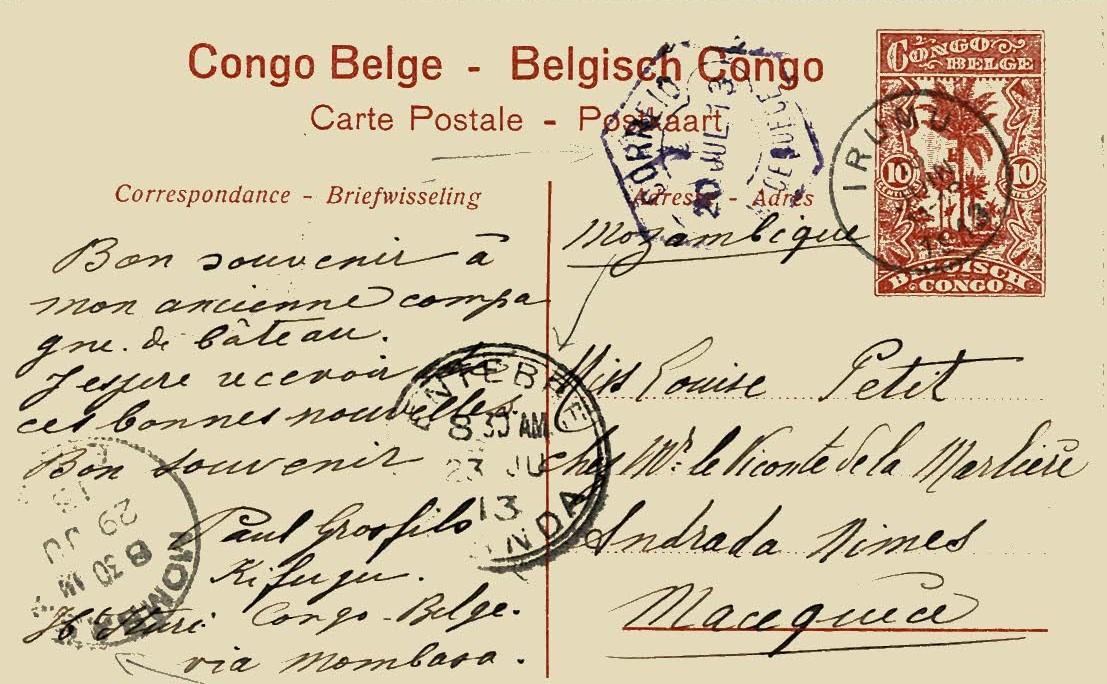 Congo Belge - Belgisch Congo
Carte Postale - Postkaart
Correspondance - Briefwisseling
Adresse - Adres
CONGO BELGE
10 10
BELGISCH CONGO
IRUMU
1913
CORREIO
20 JUL 13
Bon souvenir à
mon ancienne compa
gne. de bâteau.
J'espere recevoir de
ces bonnes nouvelles.
Bon souvenir
Paul Grosfils
Kifugu.
Ht Ituri Congo-Belge.
via Mombasa.
Mozambique
Miss Louise Petit
chez Mr. le Viconte de la Marlière
Andrada Mimes
Macequece
ENTEBBE
8 30 AM
23 JU
13
MOMBA
8 30 AM
29 JU
13